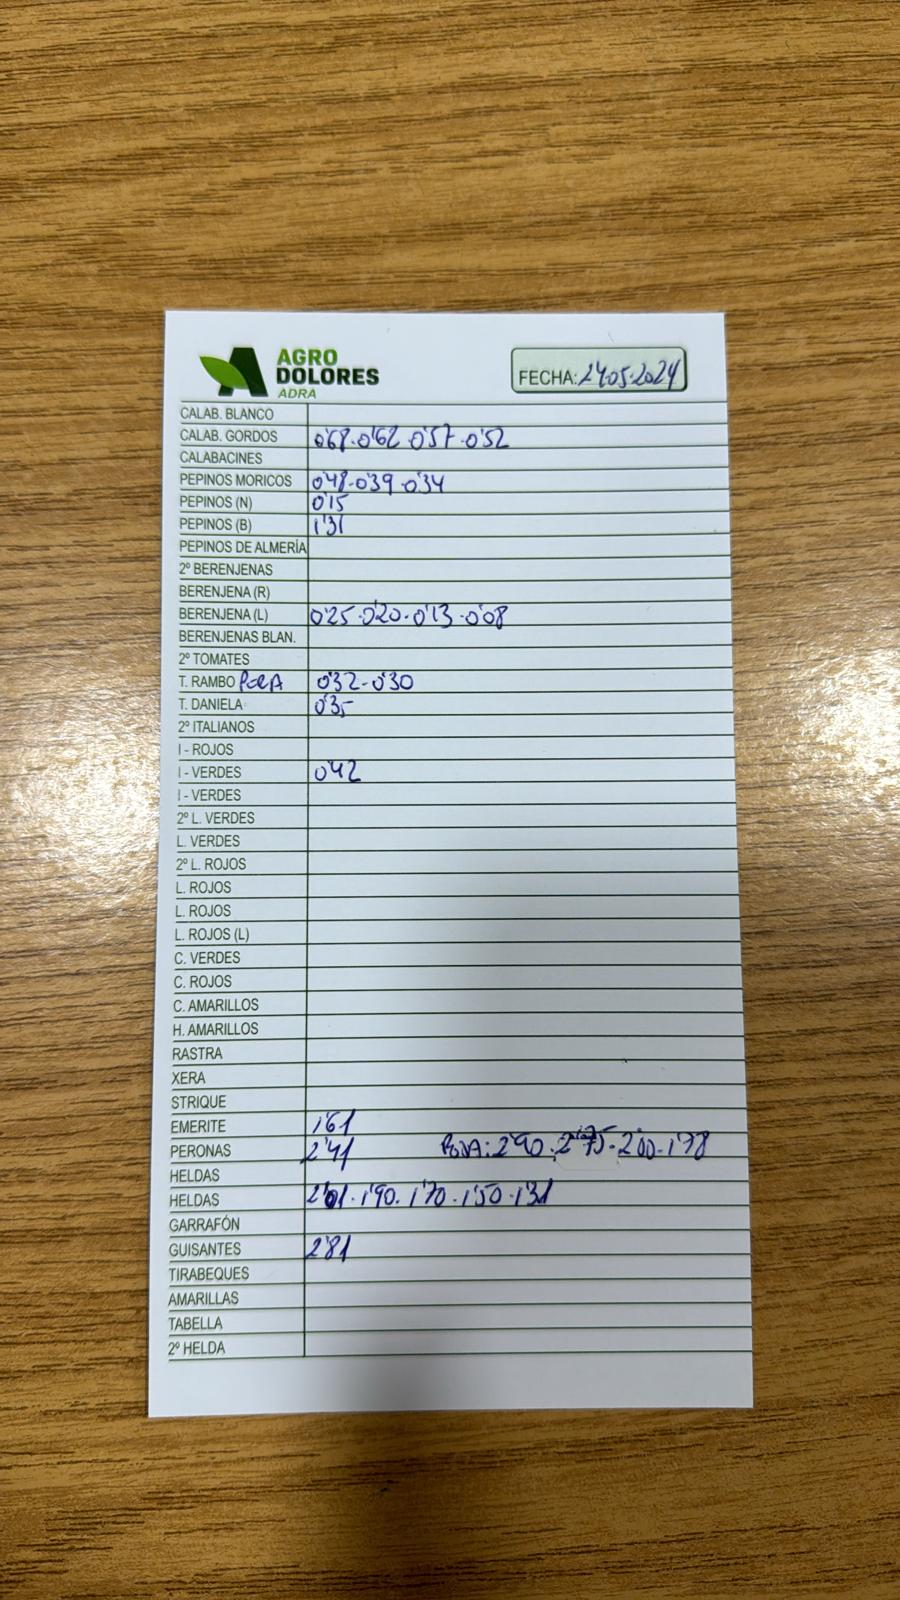 AGRO
DOLORES
ADRA
FECHA: 24.05.2024
CALAB. BLANCO
CALAB. GORDOS 0'68.0'62.0'57.0'52
CALABACINES
PEPINOS MORICOS 0'48.0'39.0'34
PEPINOS (N) 0'15
PEPINOS (B) 1'31
PEPINOS DE ALMERÍA
2º BERENJENAS
BERENJENA (R)
BERENJENA (L) 0'25.0'20.0'13.0'08
BERENJENAS BLAN.
2º TOMATES
T. RAMBO PERA 0'32-0'30
T. DANIELA 0'35
2º ITALIANOS
I - ROJOS
I - VERDES 0'42
I - VERDES
2º L. VERDES
L. VERDES
2º L. ROJOS
L. ROJOS
L. ROJOS
L. ROJOS (L)
C. VERDES
C. ROJOS
C. AMARILLOS
H. AMARILLOS
RASTRA
XERA
STRIQUE
EMERITE 1'61
PERONAS 2'41 2'90.2'75.2'00.1'78
HELDAS
HELDAS 2'01.1'90.1'70.1'50.1'31
GARRAFÓN
GUISANTES 2'81
TIRABEQUES
AMARILLAS
TABELLA
2º HELDA